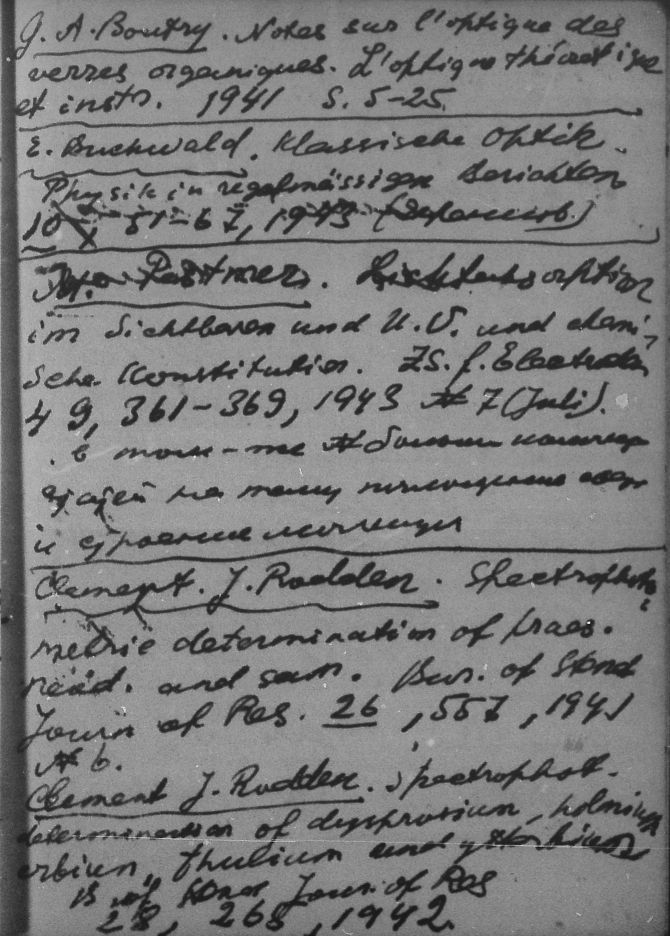 J. A. Boutry. Notes sur l'optique des
verres organiques. L'optique théoretique
et instr. 1941 S. 5-25.
E. Buchwald. Klassische Optik.
Physik in regelmässigen Berichten
10, 51-67, 1943
Lichtabsorption
im Sichtbaren und U.V. und chemi-
sche Konstitution. ZS. f. Electroche
49, 361-369, 1943 № 7 (Juli).
в том-же № больш
статей на тему поглощение
и строение молекул
Clement. J. Rodden. Spectrophoto
metric determination of praes.
neod. and sam. Bur. of Stand
Journ of Res. 26, 557, 1941
№ 6.
Clement J. Rodden. Spectrophot.
determination of dysprosium, holmium
erbium, thulium and ytterbium
B. of Stand Journ. of Res
28, 265, 1942.